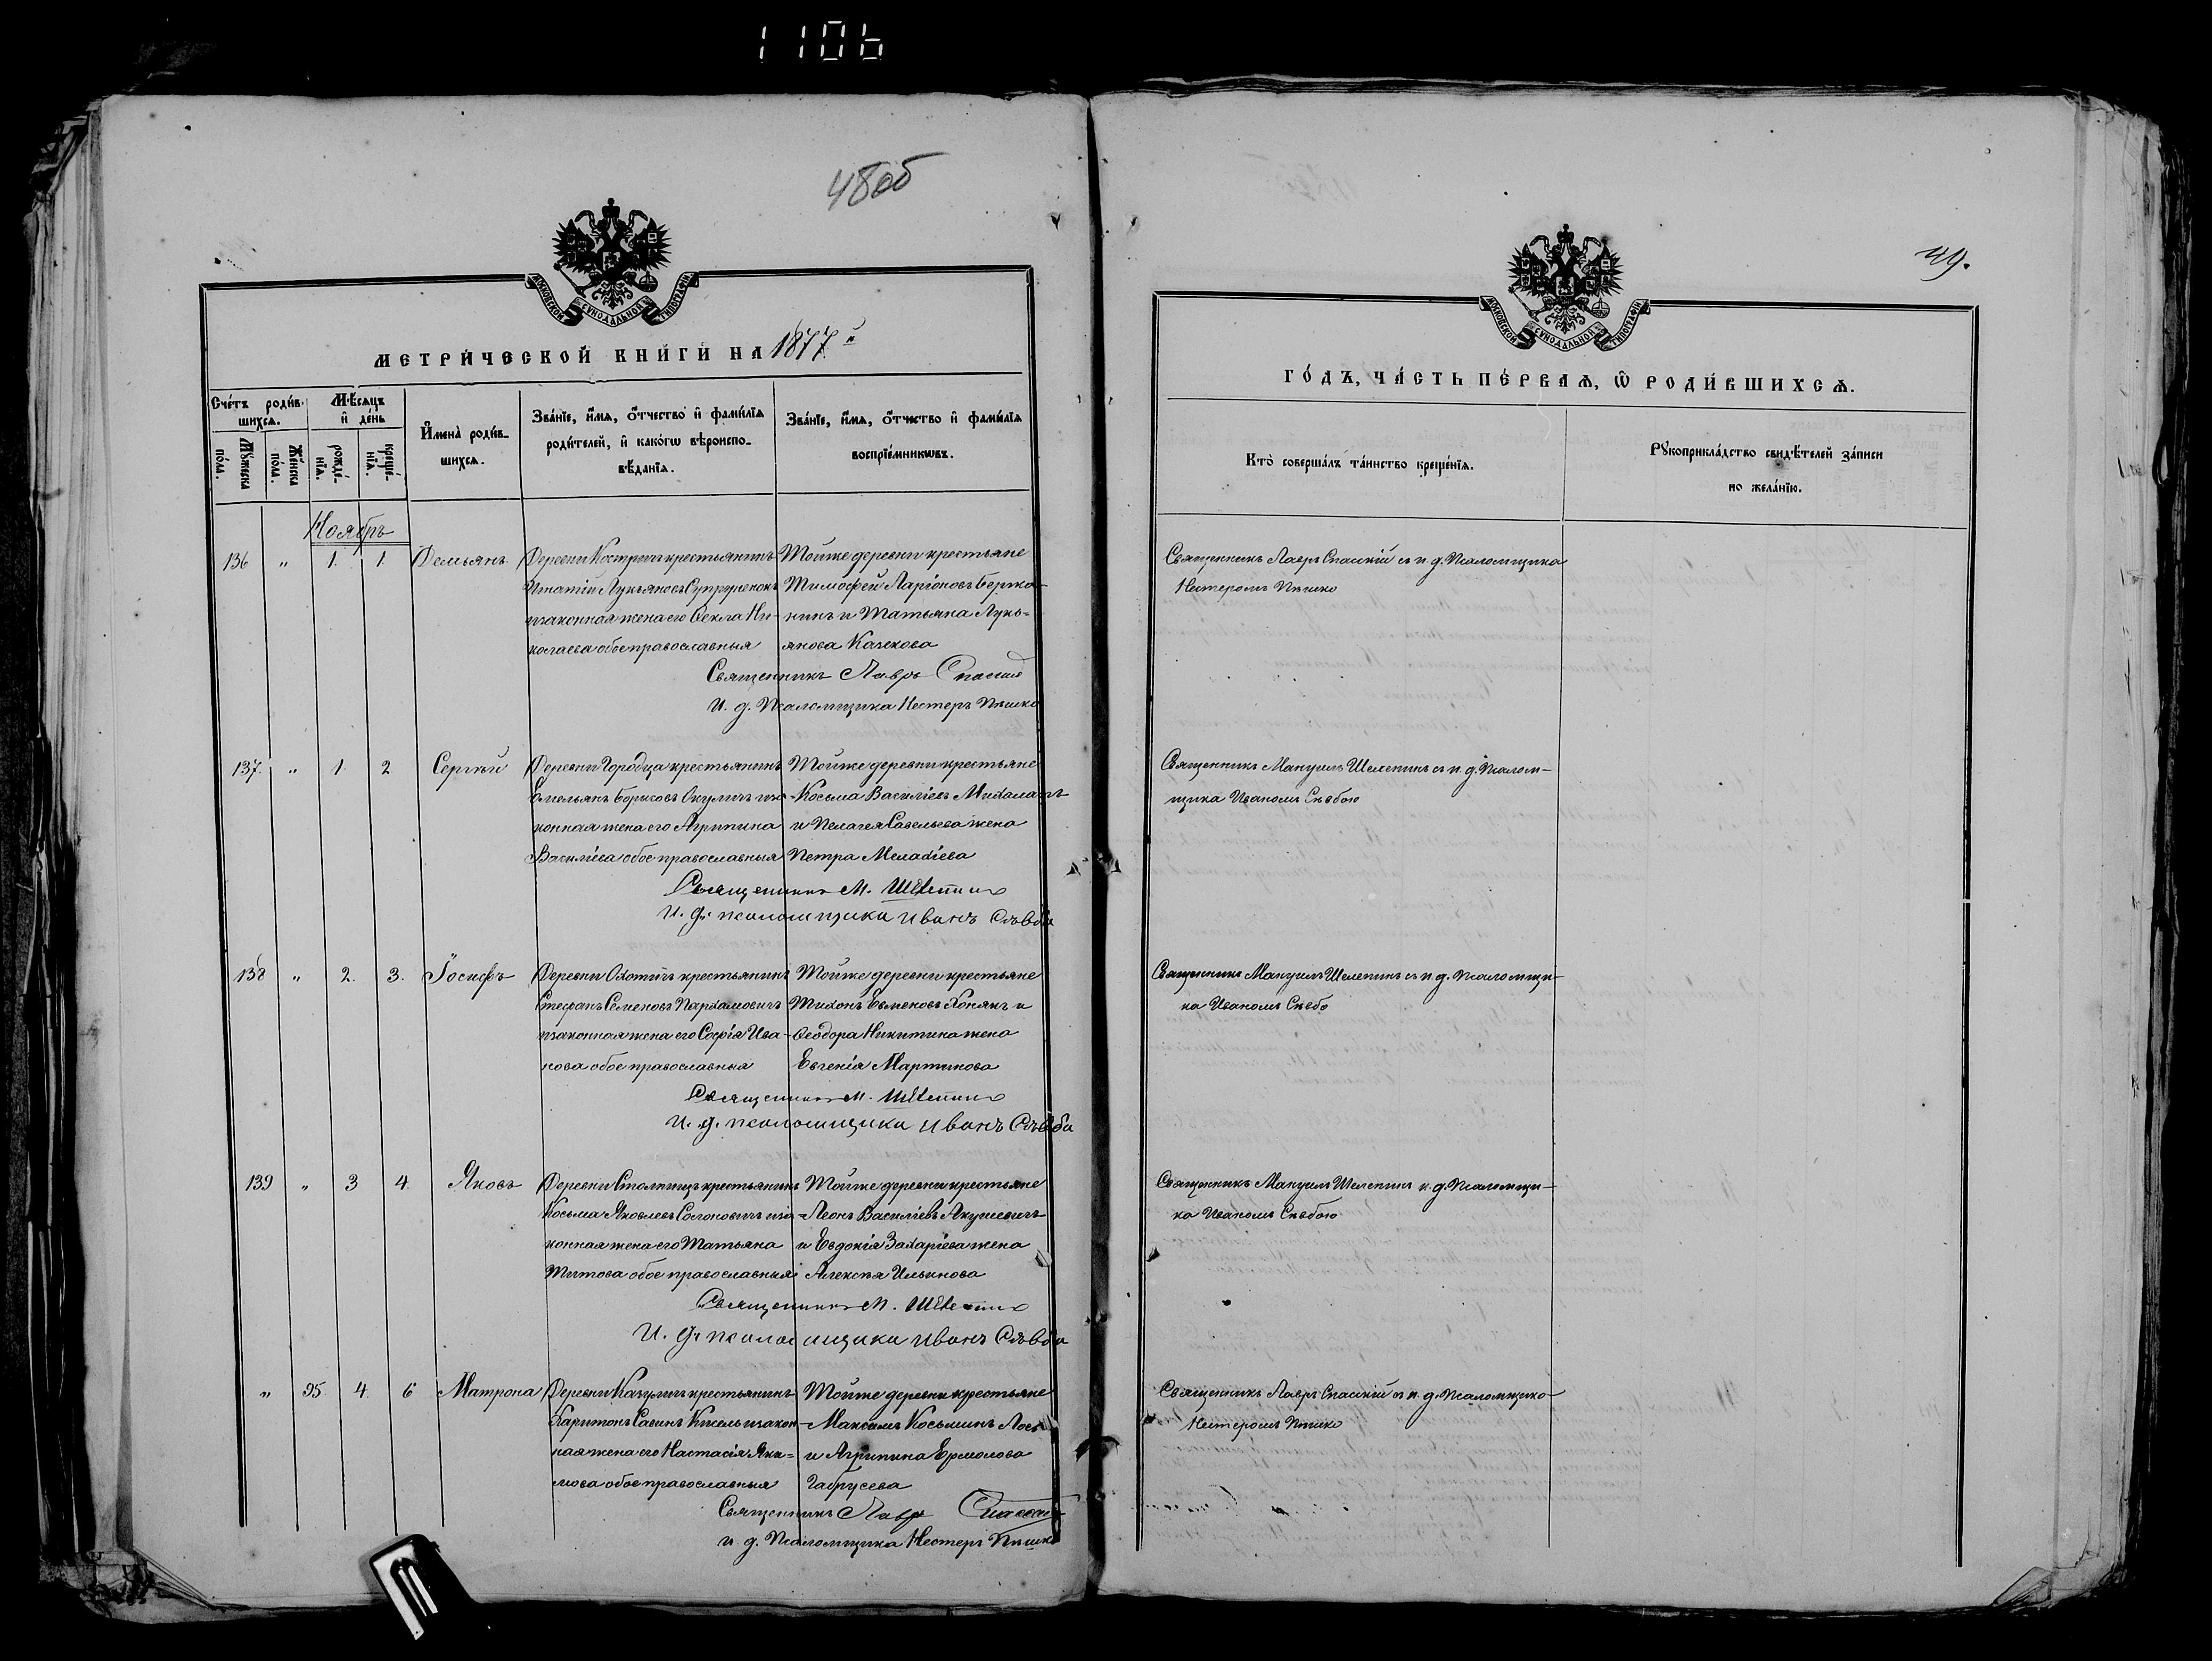 1106
48об
49.
МОСКОВСКОЙ СѴНОДАЛЬНОЙ ТИПОГРАФІИ
МЕТРИ́ЧЕСКОЙ КНИ́ГИ НА 1877й
Сче́тъ роди́в-
шихсѧ.
Мѣ́сѧцъ
и҆ де́нь
Мꙋ́жеска
по́ла.
Же́нска
по́ла.
рожде́-
нїѧ.
креще́-
нїѧ.
И҆мена̀ роди́в-
шихсѧ.
Зва́нїе, и҆́мѧ, ѻ҆́тчество и҆ фами́лїѧ
роди́телей, и҆ како́гѡ вѣроиспо-
вѣ́данїѧ.
Зва́нїе, и҆́мѧ, ѻ҆́тчество и҆ фами́лїѧ
воспрїе́мникѡвъ.
Ноябрь
136 " 1. 1. Демьянъ.
Деревни Костричъ крестьянинъ
Игнатій Лукьяновъ Супруненокъ
и законная жена его Ѳекла Ни-
колаева обое православныя
Тойже деревни крестьяне
Тимофей Ларіоновъ Бержа-
нинъ и Татьяна Лукь-
янова Казекова
Священникъ Лавръ Спаскій
И. д. Псаломщика Нестеръ Пѣшко
137. " 1. 2 Сергѣй
Деревни Городца крестьянинъ
Емельянъ Борисовъ Окуличъ и за-
конная жена его Агрипина
Василіева обое православныя
Тойже деревни крестьяне
Косьма Василіевъ Михалапъ
и Пелагея Савельева жена
Петра Мелахіева
Священникъ М. Шелепинъ
И. д. псаломщика Иванъ Слѣбба
138 " 2. 3. Іосифъ
Деревни Охотичъ крестьянинъ
Стефанъ Семеновъ Пархамовичъ
и законная жена его Софія Ива-
нова обое православныя
Тойже деревни крестьяне
Тихонъ Евменовъ Хонякъ и
Ѳеодора Никитина жена
Евгенія Мартинова
Священникъ М. Шелепинъ
И. д. псаломщика Иванъ
139 " 3 4 Яковъ
Деревни Столпищъ крестьянинъ
Косьма Яковлевъ Солоновичъ и за-
конная жена его Татьяна
Титова обое православныя
Тойже деревни крестьяне
Леонъ Василіевъ Акушевичъ
и Евдокія Захаріева жена
Алексѣя Ильинова
Священникъ М. Шелепинъ
И. д. псаломщика Иванъ
" 95. 4. 6 Матрона
Деревни Казуличъ крестьянинъ
Харитонъ Савинъ Кисель и закон-
ная жена его Настасія Яки-
мова обое православныя
Тойже деревни крестьяне
Максимъ Косьминъ Лось
и Агрипина Ермолова
Габрусева
Священникъ Лавръ Спасскій
и. д. Псаломщика Нестеръ Пѣшко
МОСКОВСКОЙ СѴНОДАЛЬНОЙ ТИПОГРАФІИ
ГО́ДЪ, ЧА́СТЬ ПЕ́РВАѦ, Ѽ РОДИ́ВШИХСѦ.
Кто̀ соверша́лъ та́инство креще́нїѧ.
Рꙋкоприкла́дство свидѣ́телей за́писи
по жела́нїю.
Священникъ Лавръ Спаскій съ и. д. Псаломщика
Нестеромъ Пѣшко
Священникъ Мануилъ Шелепинъ съ и. д. Псалом-
щика Иваномъ Слебою
Священникъ Мануилъ Шелепинъ съ и. д. Псаломщи-
ка Иваномъ Слебо
Священникъ Мануилъ Шелепинъ и. д. Псаломщи-
ка Иваномъ Слебою
Священникъ Лавръ Спаскій съ и. д. Псаломщико-
Нестеромъ Пѣшко